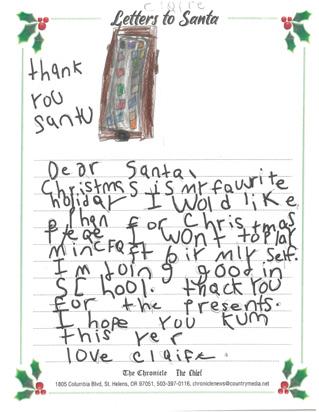 claire
Letters to Santa
thank
you
santu
Dear Santa,
Christmas is my faurite
holiday I Wold like
a phan for Christmas
Pleae I wont to Play
mincfaft bir miy self.
I'm doing good in
School. thack you
for the presents.
I hope you kum
this yer
love claire
The Chronicle The Chief
1805 Columbia Blvd, St. Helens, OR 97051, 503-397-0116, chroniclenews@countrymedia.net